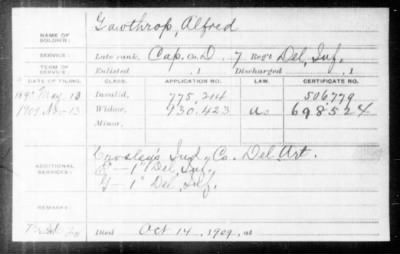 NAME OF SOLDIER: Gawthrop, Alfred
SERVICE: Late rank, Cap. Co. D, 7 Reg't Del. Inf.
TERM OF SERVICE: Enlisted , 1 Discharged , 1
DATE OF FILING. CLASS. APPLICATION NO. CERTIFICATE NO.
May 13 Invalid, 775,214 506,779
1909 13 Widow, 930.423 698524
Minor,
ADDITIONAL SERVICES: Crosley's Ind. Co. Del. Art.
E - 1" Del. Inf.
G - 1" Del. Inf.
REMARKS:
Died Oct 14, 1909, at